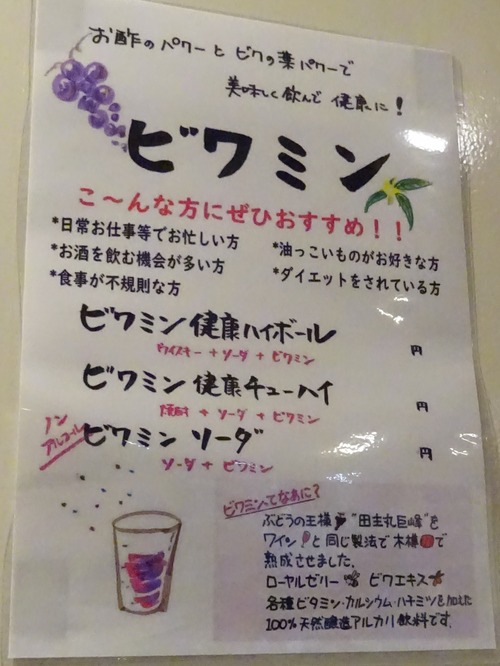 お酢のパワーと ビワの葉パワーで
美味しく飲んで 健康に!
ビワミン
こ〜んな方にぜひおすすめ!!
*日常お仕事等でお忙しい方
*油っこいものがお好きな方
*お酒を飲む機会が多い方
*ダイエットをされている方
*食事が不規則な方
ビワミン健康ハイボール 円
ウイスキー + ソーダ + ビワミン
ビワミン 健康チューハイ 円
焼酎 + ソーダ + ビワミン
ノン
アルコール
ビワミン ソーダ 円
ソーダ + ビワミン
ビワミンてなぁに?
ぶどうの王様 "田主丸巨峰"を
ワインと同じ製法で 木樽で
熟成させました。
ローヤルゼリー ビワエキス
各種ビタミン・カルシウム・ハチミツを加えた
100%天然醸造アルカリ飲料です。